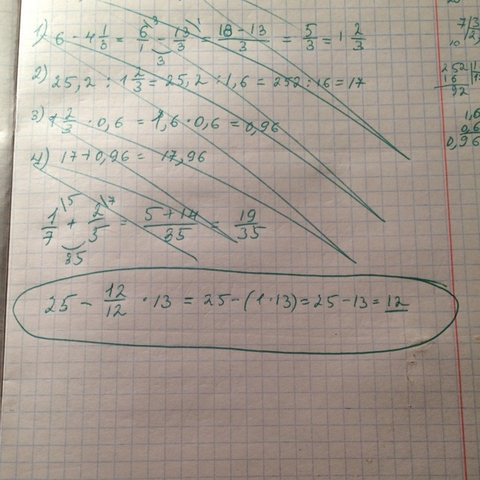 1) 6 - 4 1/3 = 6/1 \3 - 13/3 \1 = 18-13/3 = 5/3 = 1 2/3
3
2) 25,2 : 1 2/3 = 25,2 : 1,6 = 252 : 16 = 17
3) 1 2/3 · 0,6 = 1,6 · 0,6 = 0,96
4) 17 + 0,96 = 17,96
1/7 \5 + 2/5 \7 = 5+14/35 = 19/35
35
25 - 12/12 · 13 = 25 - (1 · 13) = 25 - 13 = 12
713
10
252
16
92
1,6
0,6
0,96